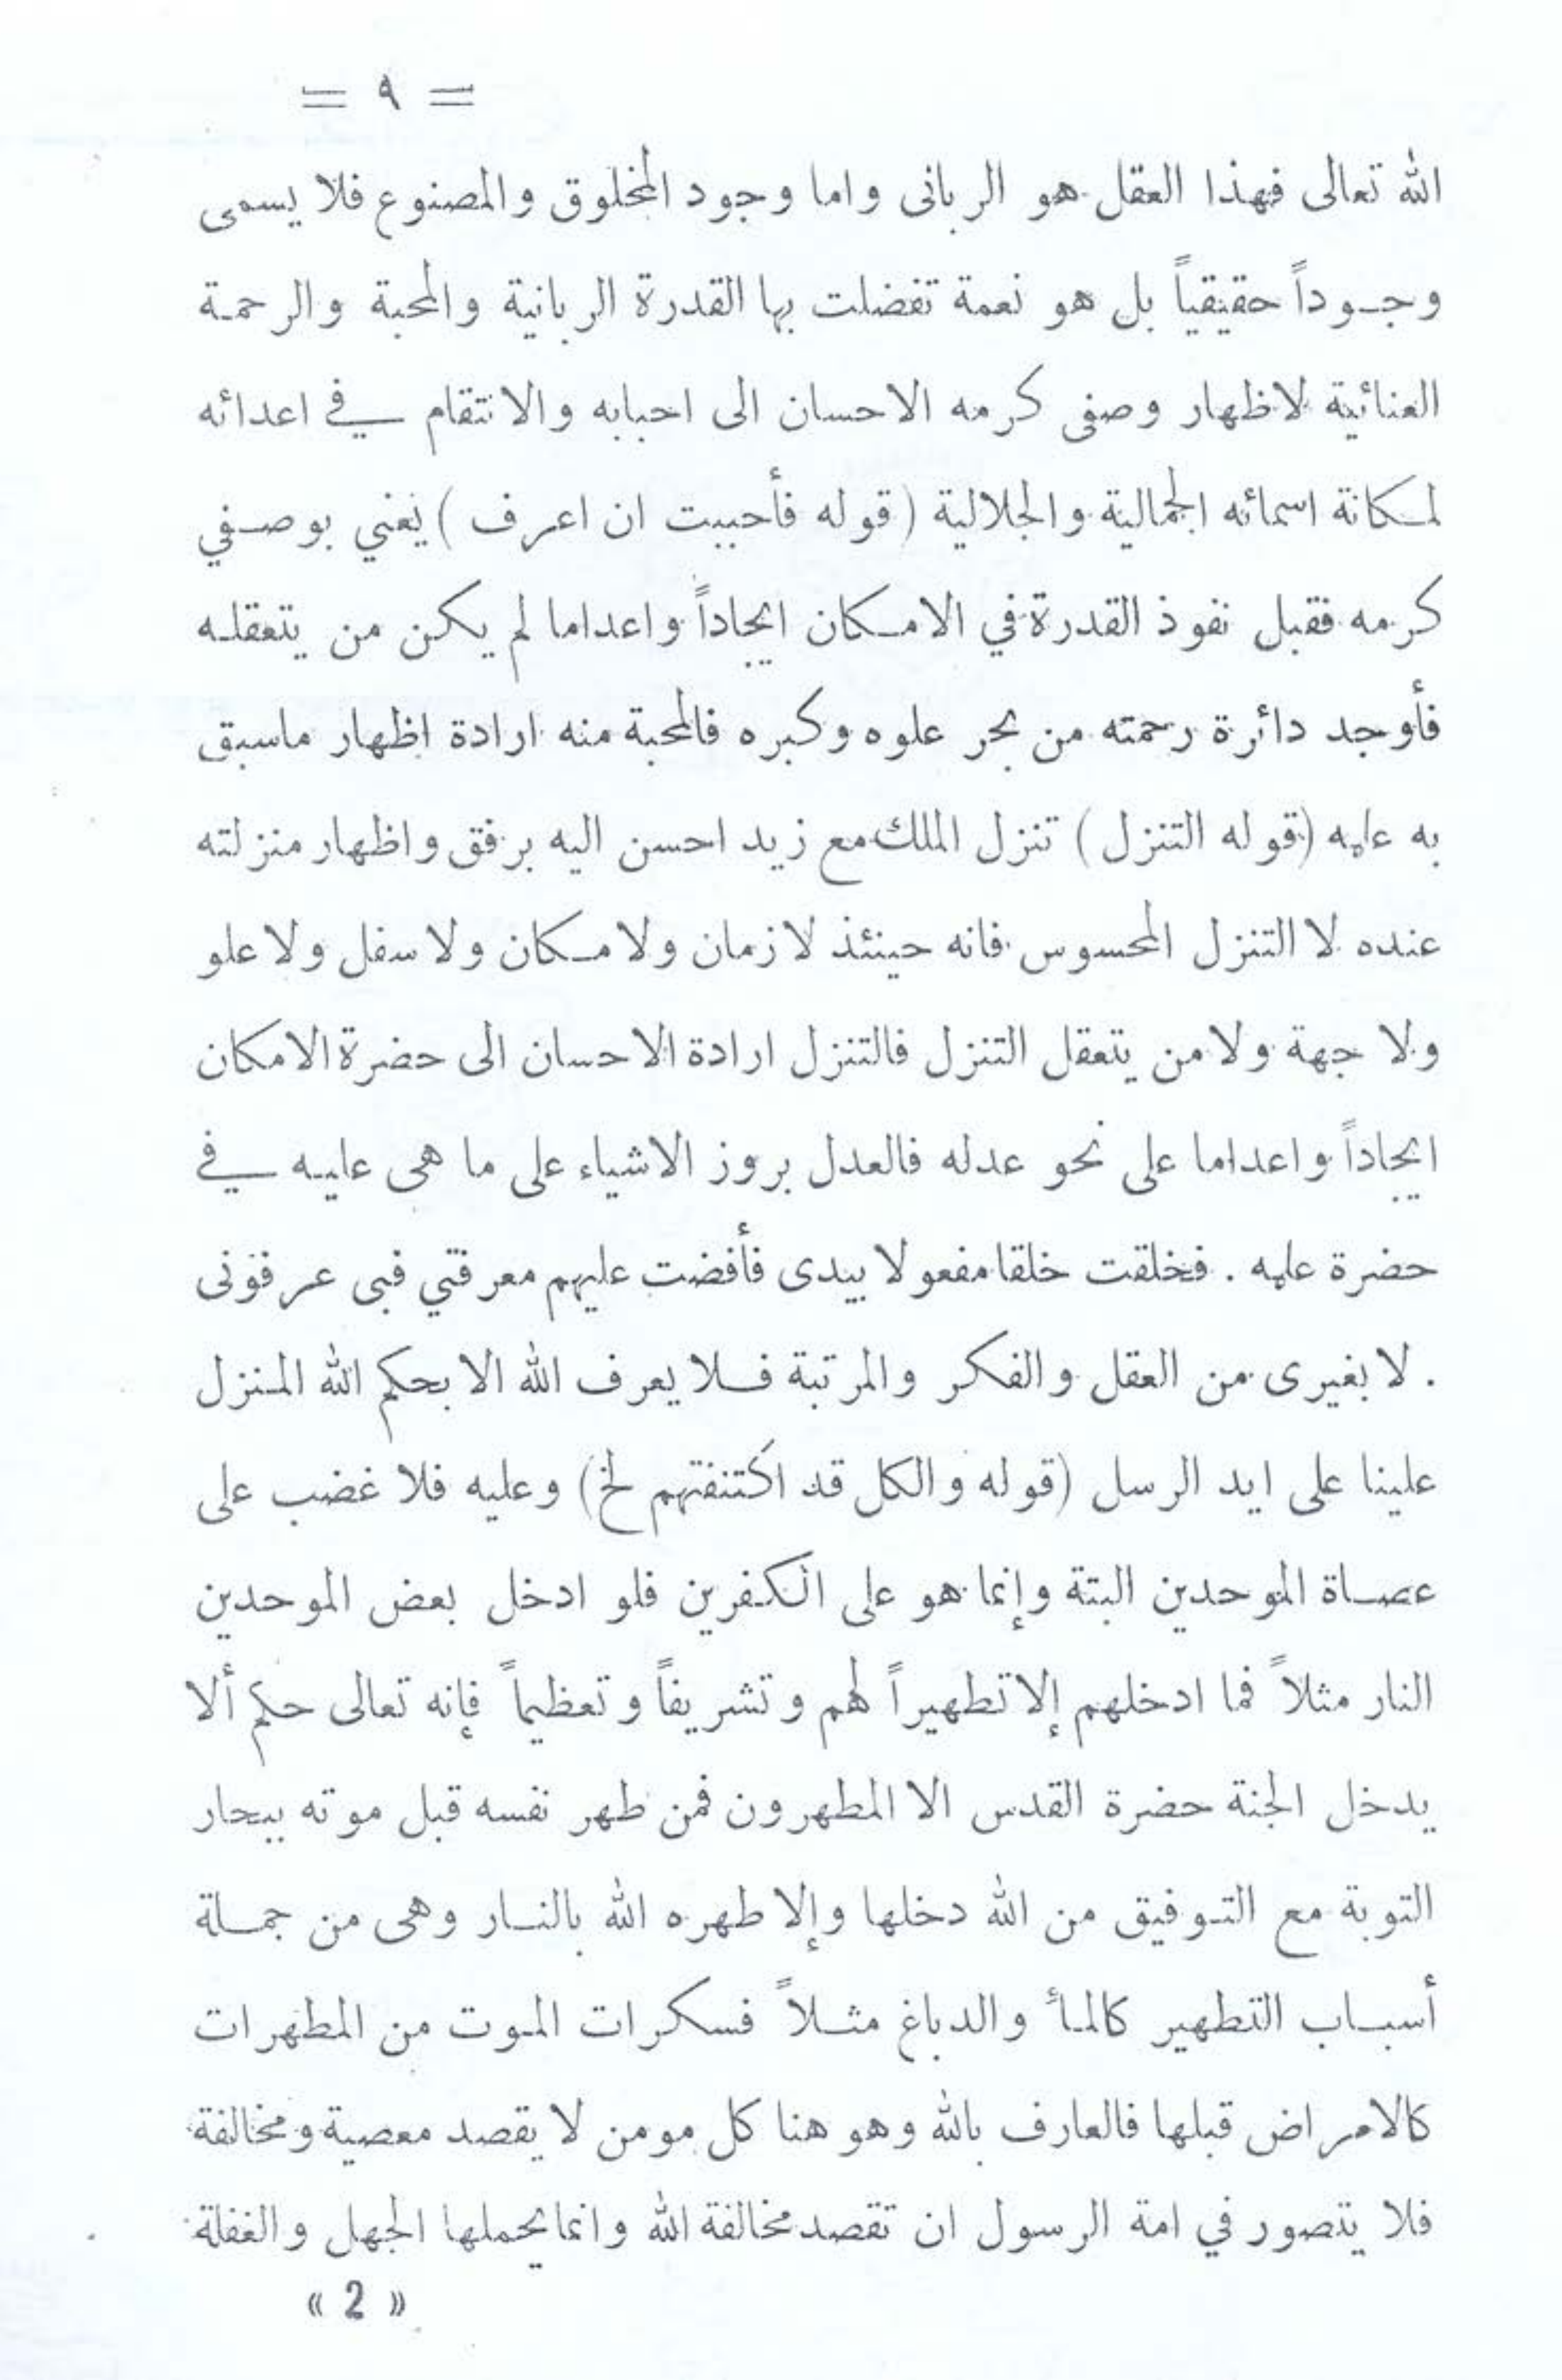 = ٩ =
الله تعالى فهذا العقل هو الربانى واما وجود المخلوق والمصنوع فلا يسمى
وجوداً حقيقياً بل هو نعمة تفضلت بها القدرة الربانية والمحبة والرحمة
العنائية لاظهار وصفى كرمه الاحسان الى احبابه والانتقام في اعدائه
لمكانة اسمائه الجمالية والجلالية (قوله فأحببت ان اعرف) يعني بوصفي
كرمه فقبل نفوذ القدرة في الامكان ايجاداً واعداما لم يكن من يتعقله
فأوجد دائرة رحمته من بحر علوه وكبره فالمحبة منه ارادة اظهار ماسبق
به علمه (قوله التنزل) تنزل الملك مع زيد احسن اليه برفق واظهار منزلته
عنده لا التنزل المحسوس فانه حينئذ لا زمان ولا مكان ولا سفل ولا علو
ولا جهة ولا من يتعقل التنزل فالتنزل ارادة الاحسان الى حضرة الامكان
ايجاداً واعداما على نحو عدله فالعدل بروز الاشياء على ما هى عليه في
حضرة علمه . فخلقت خلقا مفعولا بيدى فأفضت عليهم معرفتي فبى عرفونى
. لا بغيرى من العقل والفكر والمرتبة فلا يعرف الله الا بحكم الله المنزل
علينا على ايد الرسل (قوله والكل قد اكتنفتهم لخ) وعليه فلا غضب على
عصاة الموحدين البتة وإنما هو على الكفرين فلو ادخل بعض الموحدين
النار مثلاً فما ادخلهم إلا تطهيراً لهم وتشريفاً وتعظيماً فإنه تعالى حكم ألا
يدخل الجنة حضرة القدس الا المطهرون فمن طهر نفسه قبل موته ببحار
التوبة مع التوفيق من الله دخلها وإلا طهره الله بالنار وهى من جملة
أسباب التطهير كالمأ والدباغ مثلاً فسكرات الموت من المطهرات
كالامراض قبلها فالعارف بالله وهو هنا كل مومن لا يقصد معصية ومخالفة
فلا يتصور في امة الرسول ان تقصد مخالفة الله وانما يحملها الجهل والغفلة
« 2 »